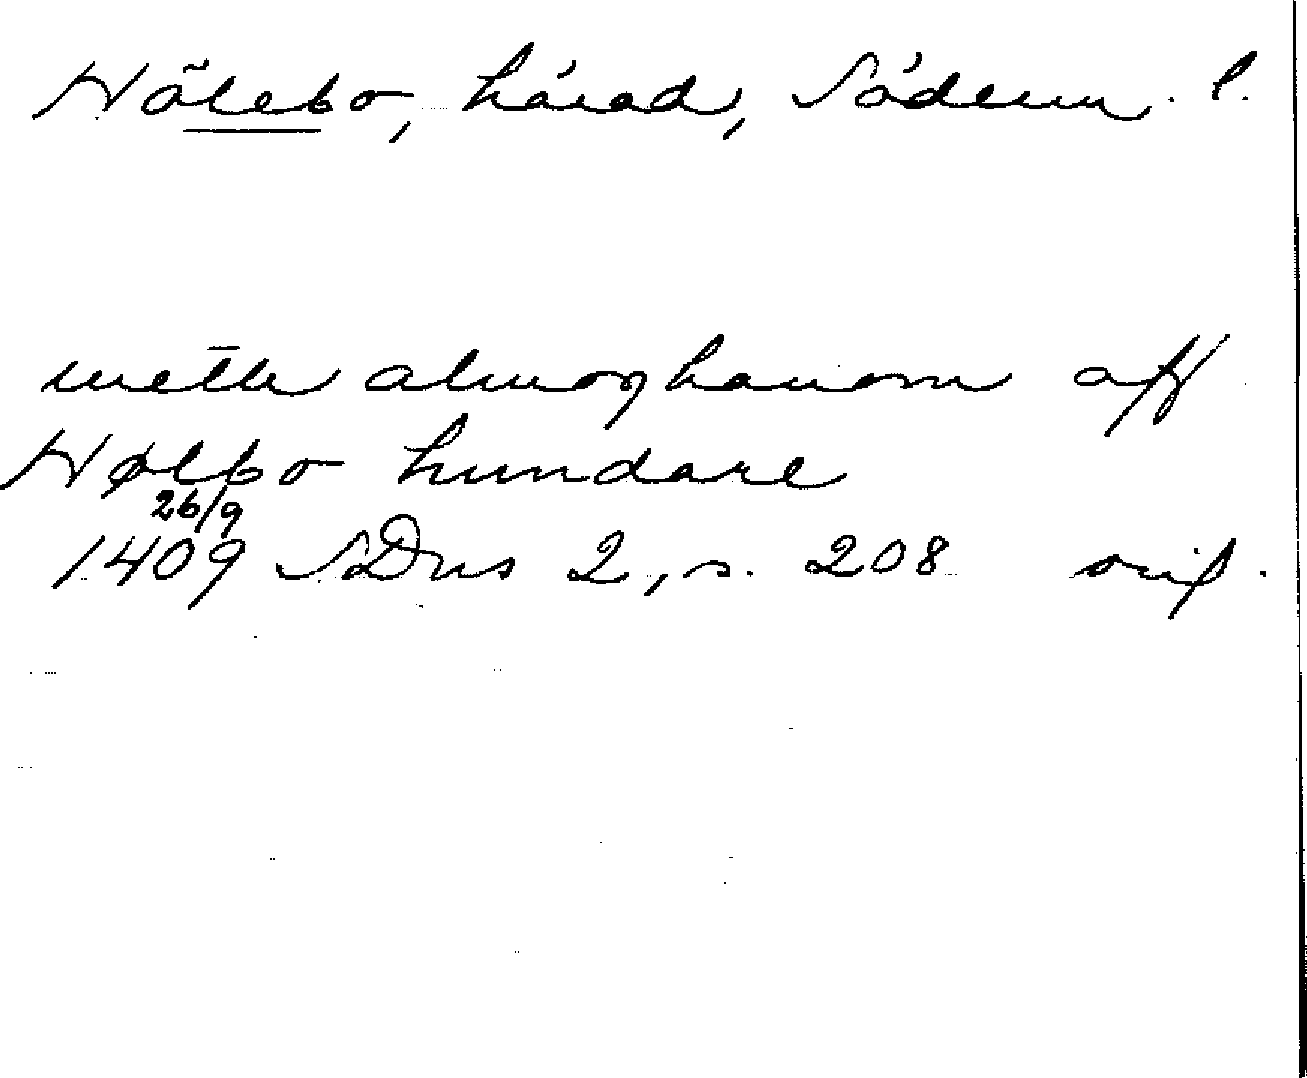 Hölebo, härad, Söderm. l.
meth almoghanom aff
Hølbo hundare
26/9
1409 SDns 2, s. 208 orig.